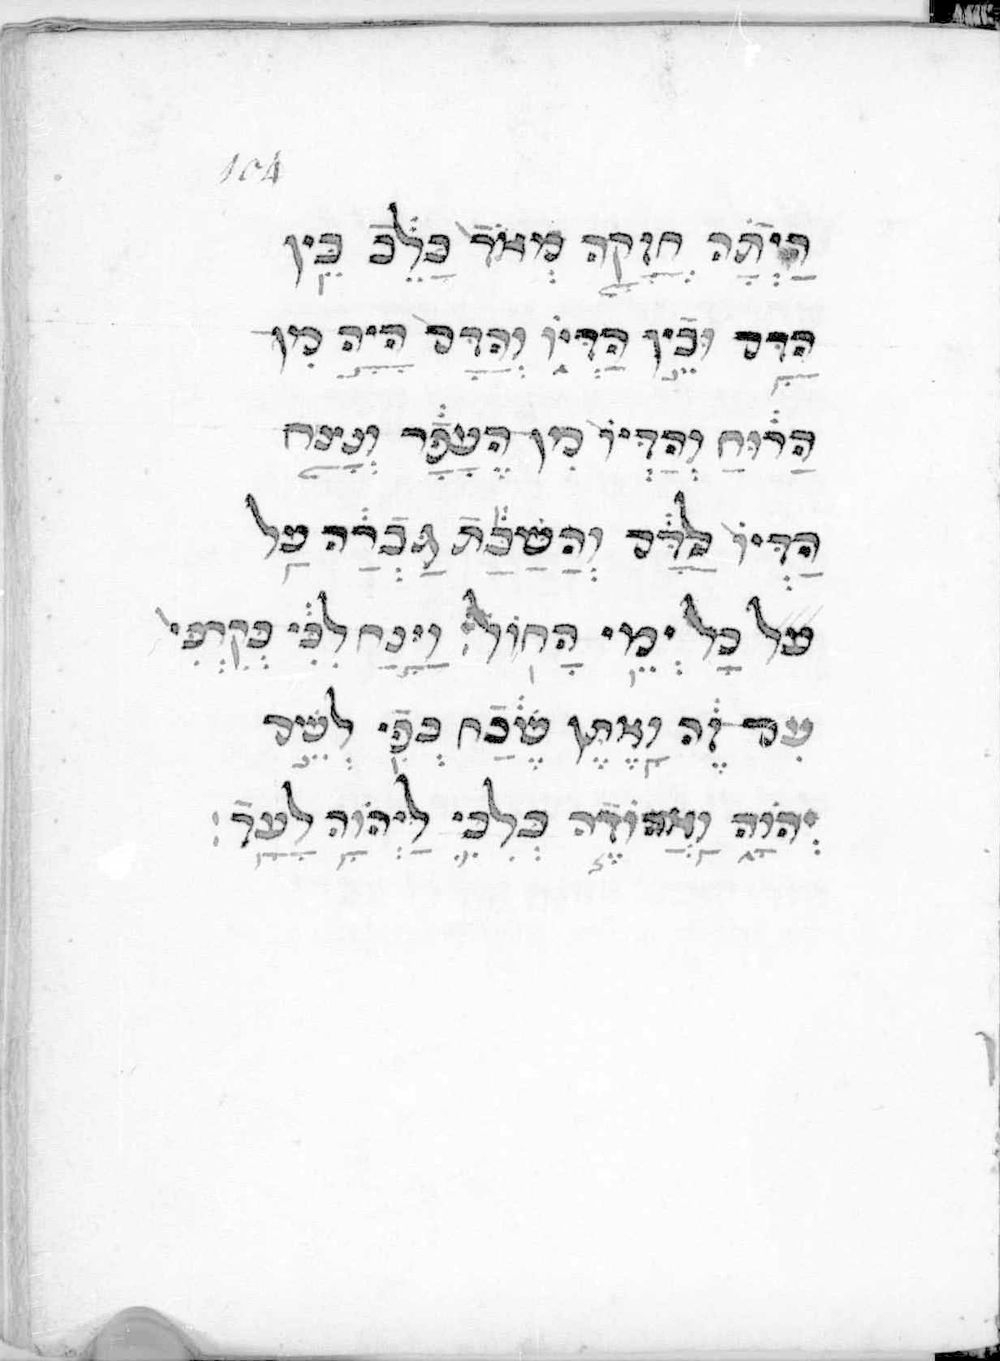 הַיְתָה חֲזָקָה מְאֹד בַּלֵּב בֵּין
הַדָּם וּבֵין הַדְּיוֹ וְהַדָּם הָיָה מִן
הַרוּחַ וְהַדְּיוֹ מִן הֶעָפָר וְנָצַח
הַדְּיוֹ לַדָּם וְהַשַׁבַּת גַּבְרָה עַל
עַל כָּל יְמֵי הָחוֹל וַיָּנַח לִבִּי בְּקִרְבִּי
עִם זֶה וָאֶתֶּן שֶׁבַח בְּפִי לְשֵׁם
יְהוָה וַאֲהוֹדֶה בְּלִבִּי לַיְהוָה לָעַד׃